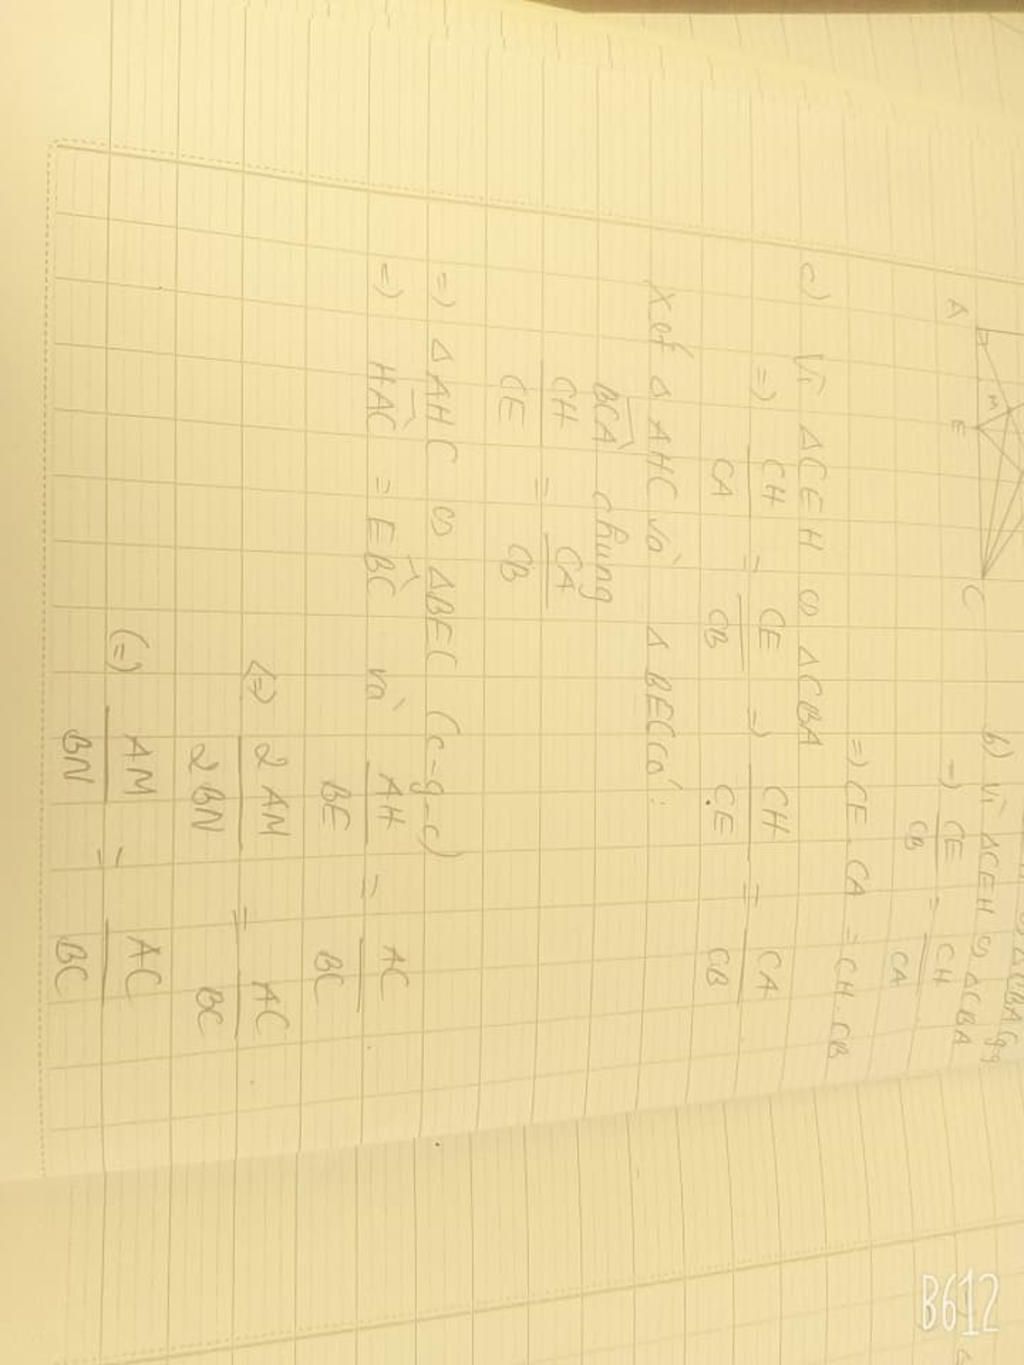 A
M
E
C
b) Vì ΔCEH ∽ ΔCBA
=) CE/CB = CH/CA
=) CE . CA = CH . CB
c) Vì ΔCEH ∽ ΔCBA
=) CH/CA = CE/CB =) CH/CE = CA/CB
Xét ΔAHC và ΔBEC có:
BCA chung
CH/CE = CA/CB
=) ΔAHC ∽ ΔBEC (c-g-c)
=) HAC = EBC và AH/BE = AC/BC
(=) 2AM/2BN = AC/BC
(=) AM/BN = AC/BC
B612